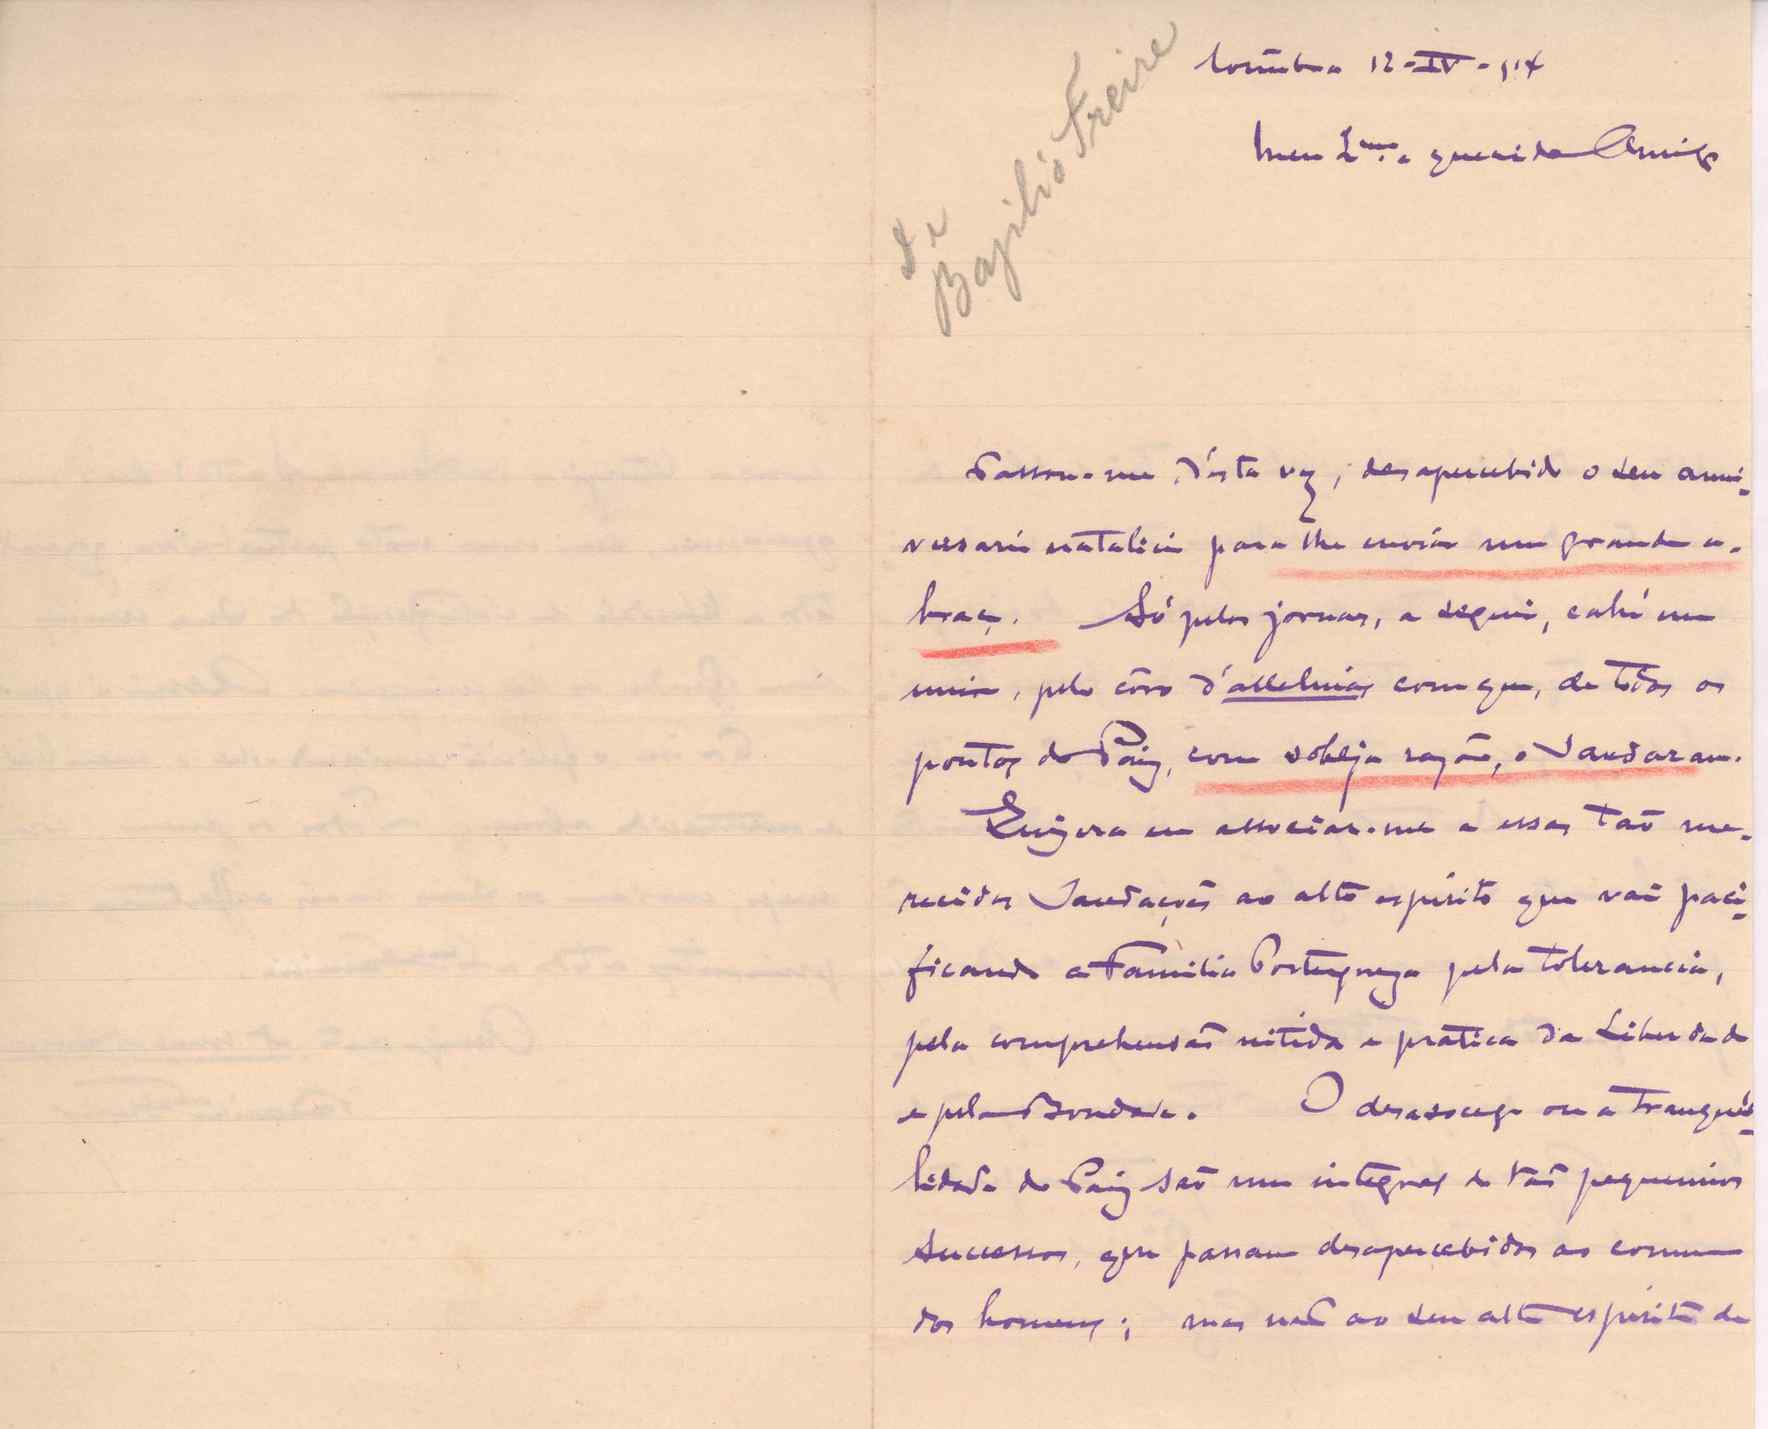 de
Bazilio Freire
Coimbra 12-IV-914
Meu Exmo. e querido Amigo
Passou-me, d'esta vez, desapercebido o seu anni-
versario natalicio para lhe enviar um grande a-
braço. Só pelos jornaes, a seguir, cahi em
mim, pelo côro d'alleluias com que, de todos os
pontos do Paiz, com sobeja razão, o saudaram.
Quizera eu associar-me a essas tão me-
recidas saudações ao alto espirito que vai paci-
ficando a Familia Portugueza pela tolerancia,
pela comprehensão nitida e pratica da Liberdade
e pela Bondade. O desasocego ou a tranqui-
lidade do Paiz são um integral de tão pequeninos
sucessos, que passam desapercebidos ao comum
dos homens; mas não ao seu alto espirito de